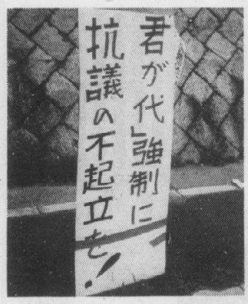 君が代」強制に
抗議の不起立を!